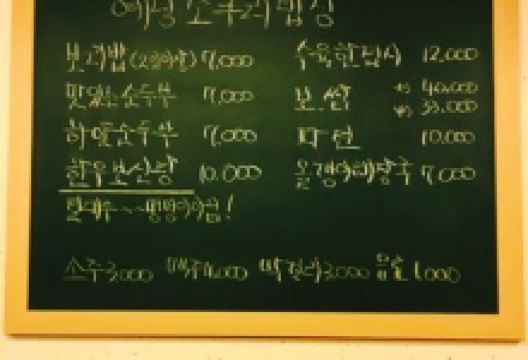 보리밥(2인이상) 7,000
맛있는순두부 7,000
하얀순두부 7,000
한우보신탕 10,000
절대우~~멍멍이아님!
수육한접시 12,000
보쌈 大) 40,000
小) 35,000
파전 10,000
올갱이해장국 7,000
소주3,000 맥주4,000 막걸리3,000 음료1,000